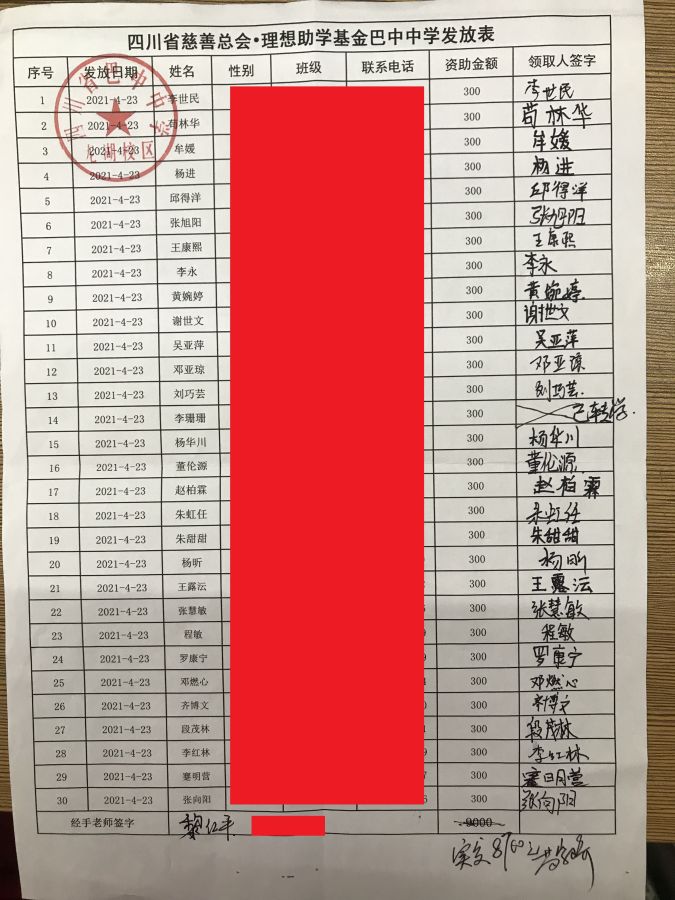 四川省慈善总会•理想助学基金巴中中学发放表
序号 发放日期 姓名 性别 班级 联系电话 资助金额 领取人签字
1 2021-4-23 李世民 300 李世民
2 2021-4-23 苟林华 300 苟林华
3 2021-4-23 牟媛 300 牟媛
4 2021-4-23 杨进 300 杨进
5 2021-4-23 邱得洋 300 邱得洋
6 2021-4-23 张旭阳 300 张旭阳
7 2021-4-23 王康熙 300 王康熙
8 2021-4-23 李永 300 李永
9 2021-4-23 黄婉婷 300 黄婉婷
10 2021-4-23 谢世文 300 谢世文
11 2021-4-23 吴亚萍 300 吴亚萍
12 2021-4-23 邓亚琼 300 邓亚琼
13 2021-4-23 刘巧芸 300 刘巧芸
14 2021-4-23 李珊珊 300 已转学.
15 2021-4-23 杨华川 300 杨华川
16 2021-4-23 董伦源 300 董伦源
17 2021-4-23 赵柏霖 300 赵柏霖
18 2021-4-23 朱虹任 300 朱虹任
19 2021-4-23 朱甜甜 300 朱甜甜
20 2021-4-23 杨昕 300 杨昕
21 2021-4-23 王露沄 300 王露沄
22 2021-4-23 张慧敏 300 张慧敏
23 2021-4-23 程敏 300 程敏
24 2021-4-23 罗康宁 300 罗康宁
25 2021-4-23 邓燃心 300 邓燃心
26 2021-4-23 齐博文 300 齐博文
27 2021-4-23 段茂林 300 段茂林
28 2021-4-23 李红林 300 李红林
29 2021-4-23 蹇明营 300 蹇明营
30 2021-4-23 张向阳 300 张向阳
经手老师签字 9000
实发8700元
四川省巴中中学
校区